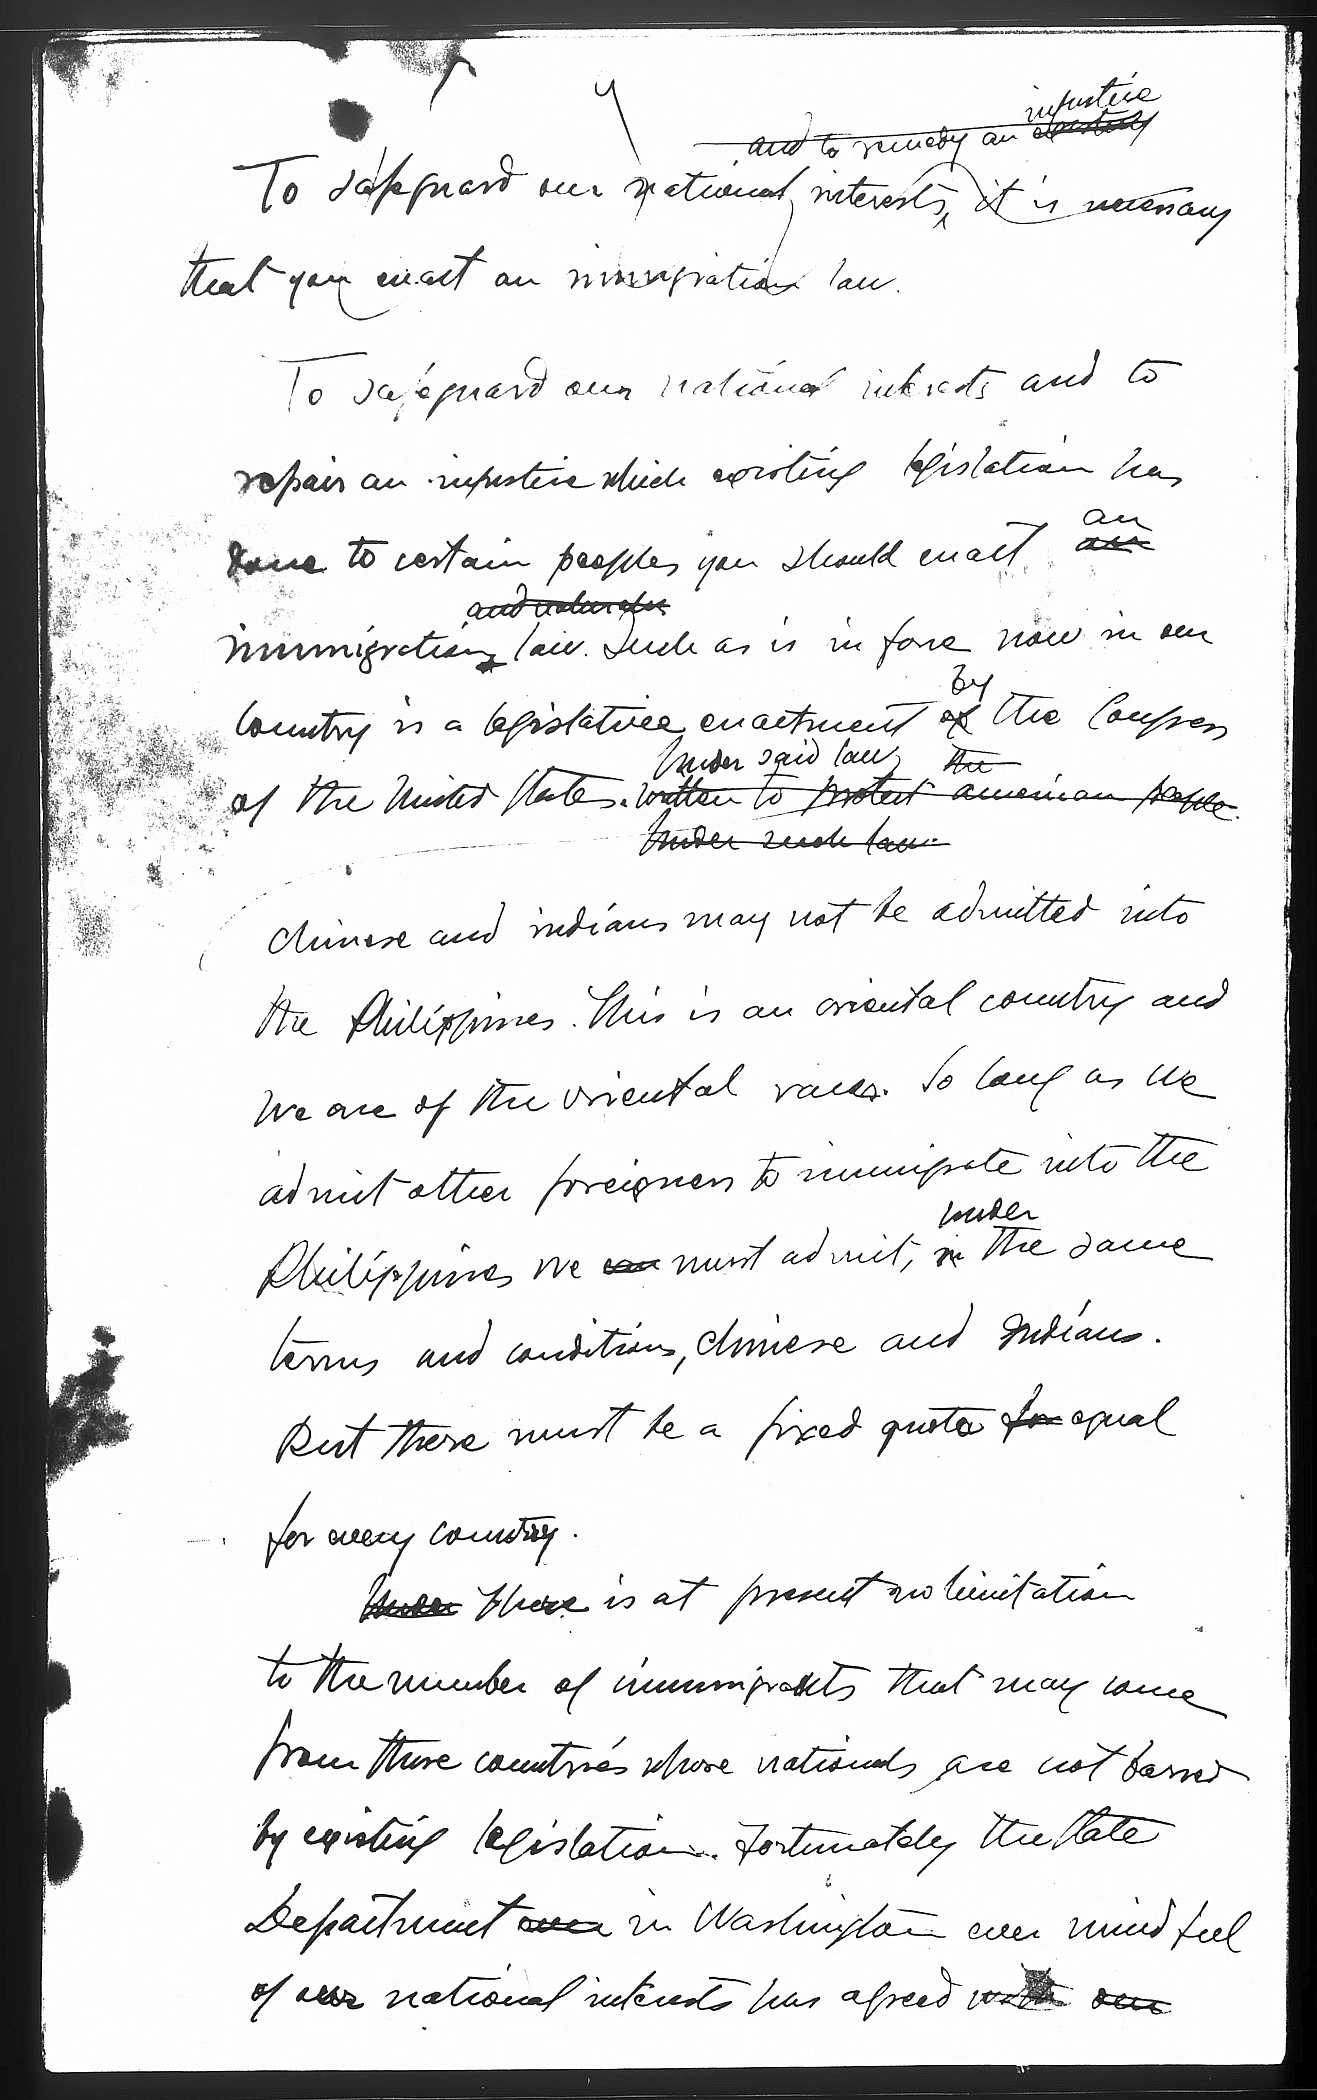 injustice
and to remedy an
To safeguard our national interests, it is necessary
that you enact an immigration law.
To safeguard our national interests and to
repair an injustice which existing legislation has
done to certain peoples you should enact
an
an
and naturalis
immigration law. Such as is in force now in our
by
country is a legislative enactment of the Congress
Under said law, the
of the United States. written to protect american people.
Under such law
chinese and indians may not be admitted into
the Philippines. This is an oriental country and
we are of the oriental races. So long as we
admit other foreigners to immigrate into the
under
Philippines we can must admit, in the same
terms and conditions, chinese and Indians.
But there must be a fixed quota for equal
for every country.
Under There is at present no limitation
to the number of immigrants that may come
from those countries whose nationals are not barred
by existing legislation. Fortunately the State
Department ever in Washington ever mindful
of our national interests has agreed with our